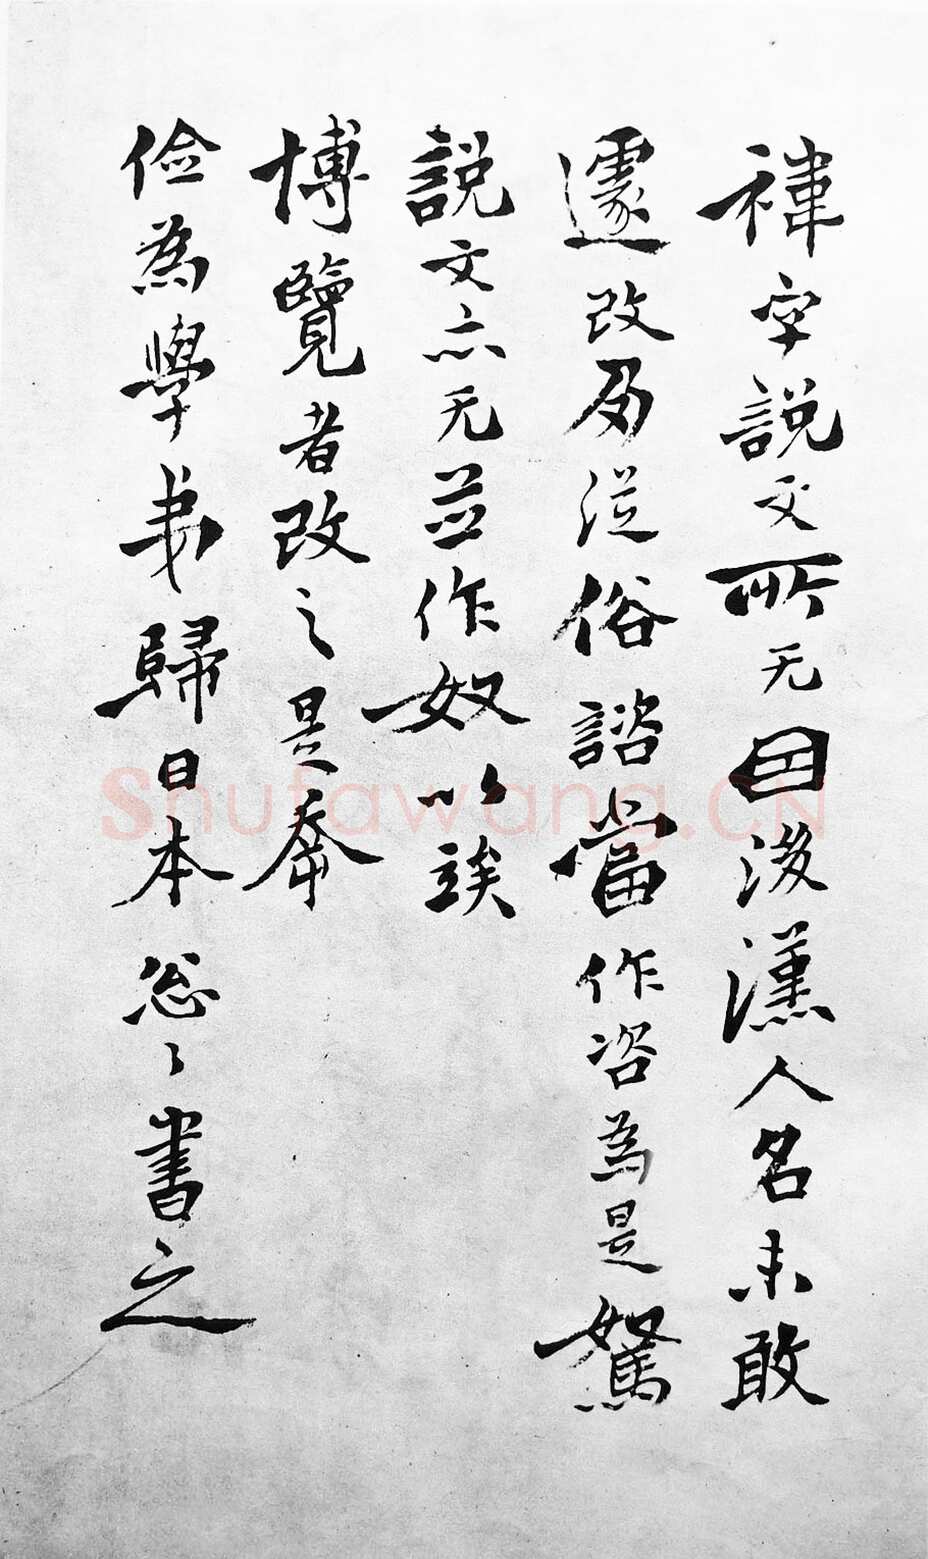 禕字說文所无因後漢人名未敢
遽改易從俗諮當作咨為是駑
說文亦无並作奴以竢
博覽者改之是牽
俭為學弟歸日本怱〻書之
Shufawang.CN